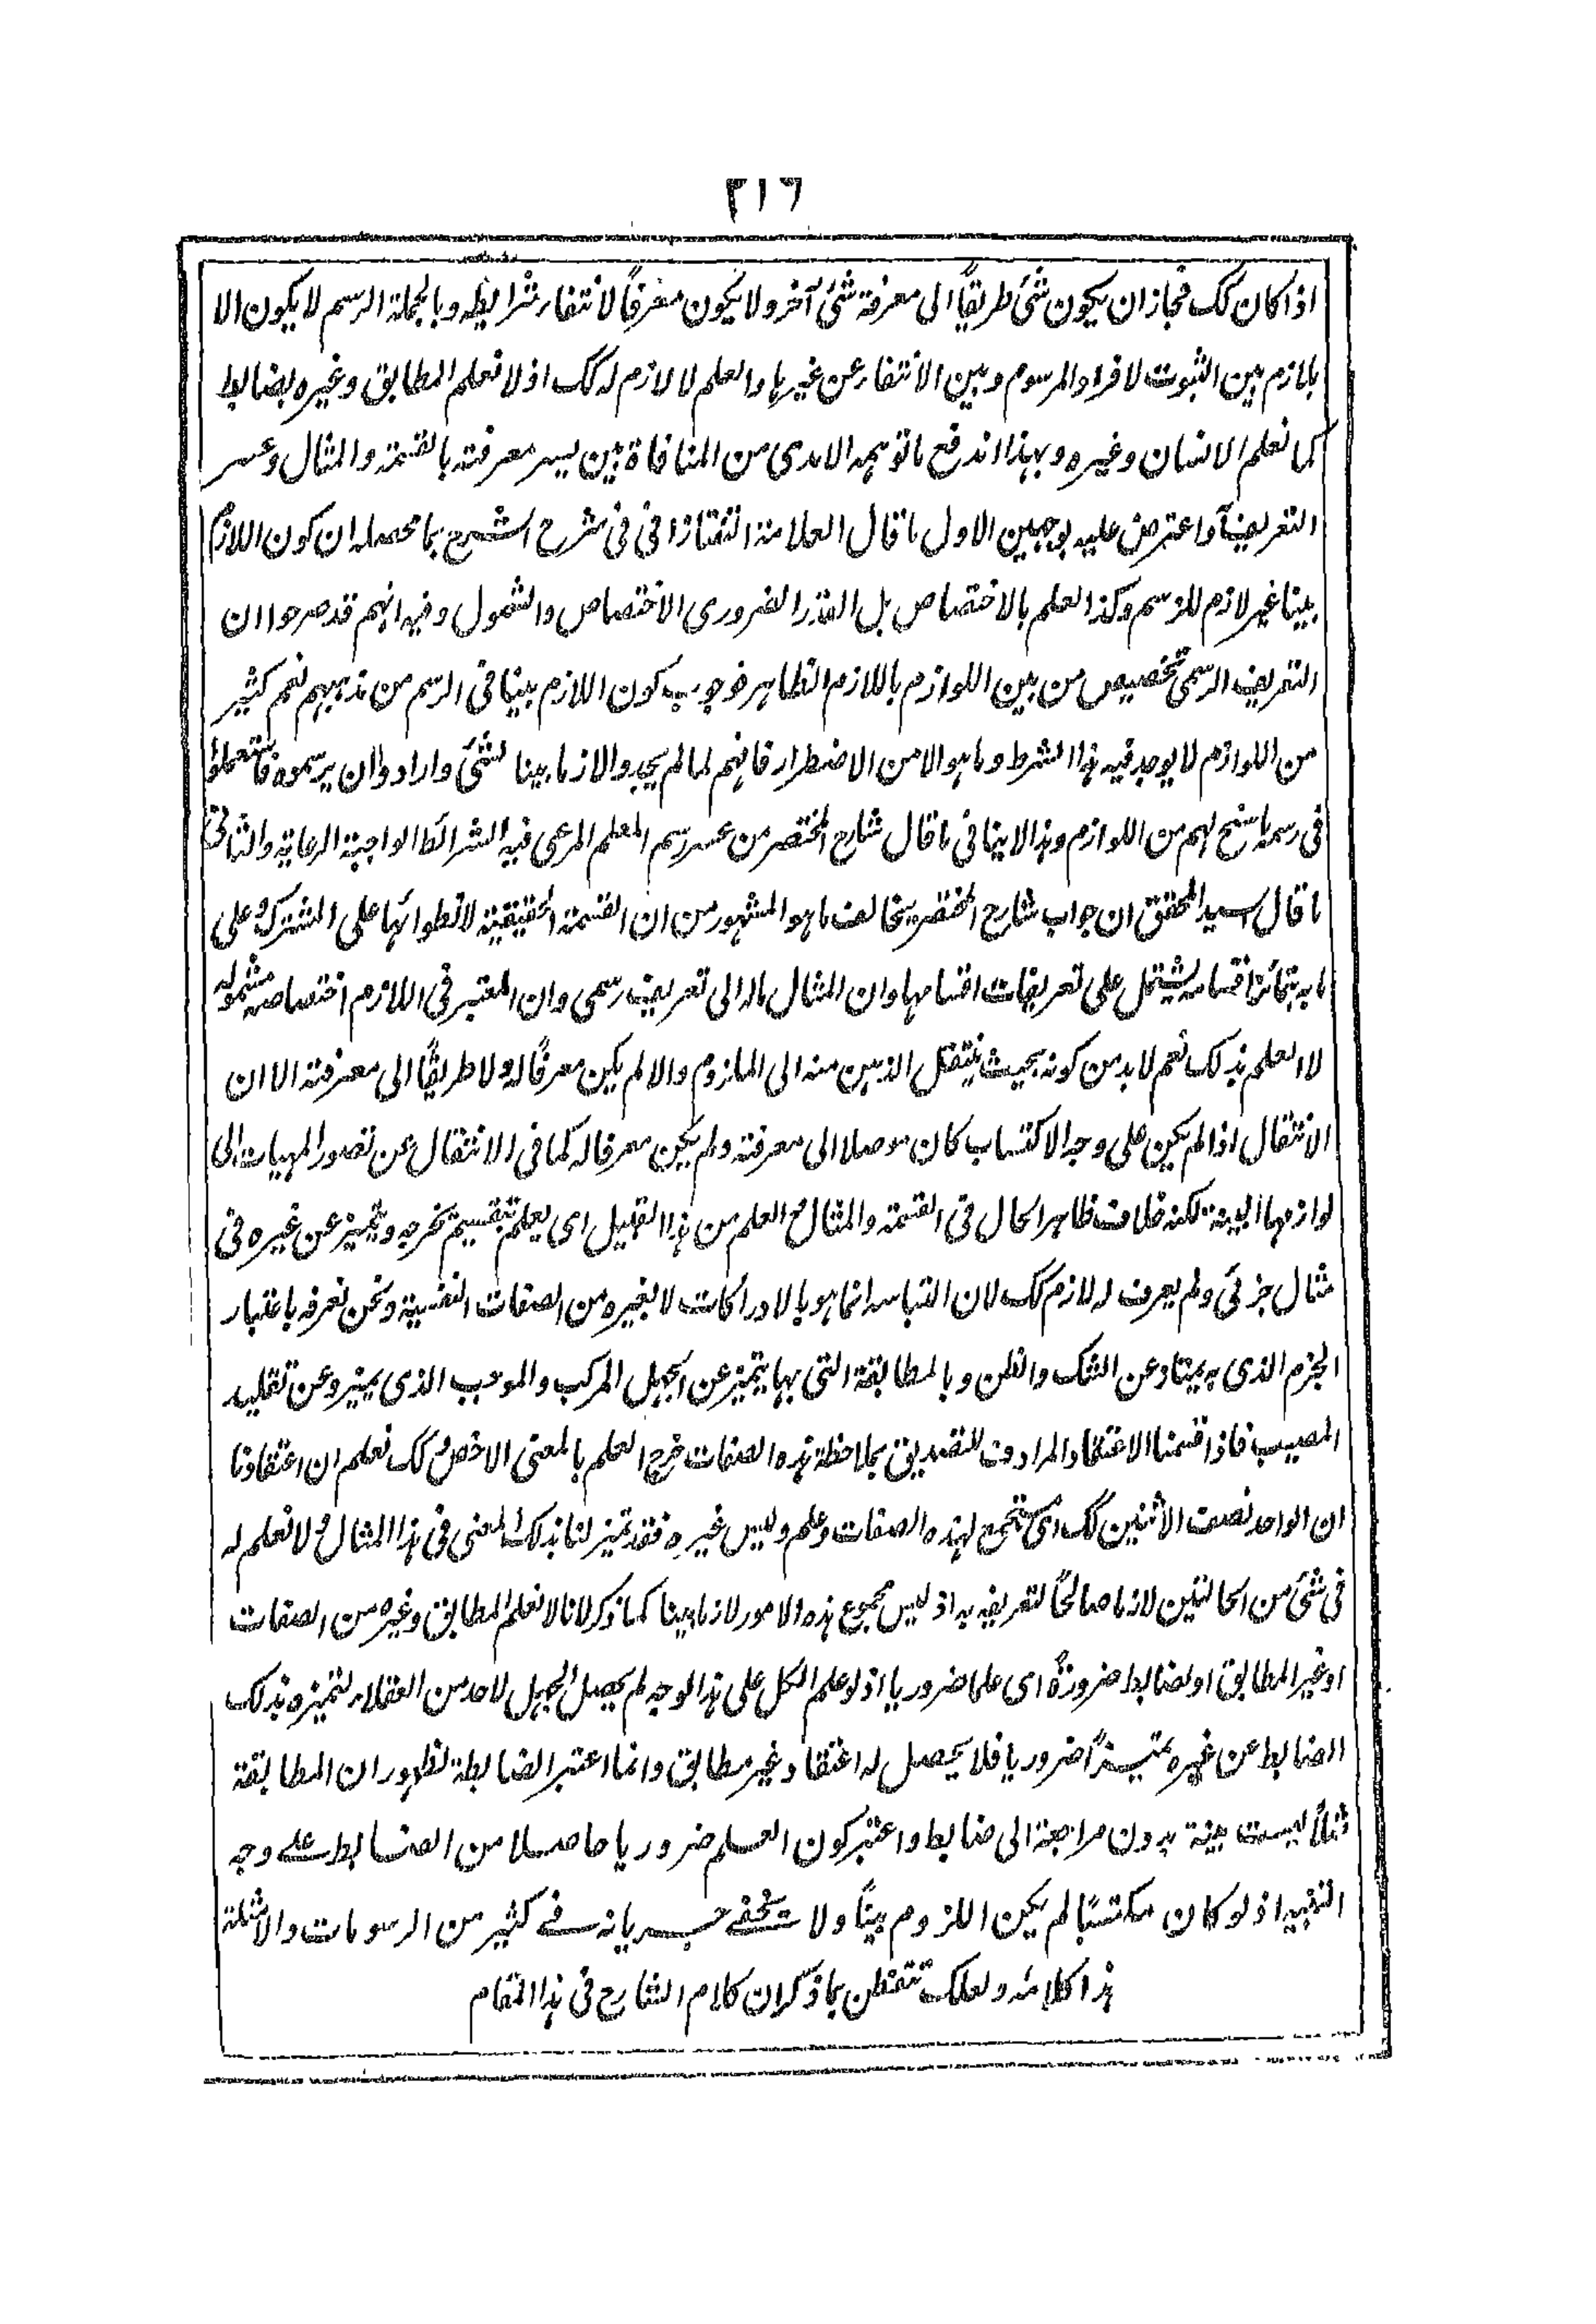 ٢١٦
اذا كان كك فجاز ان يكون شئ طريقاً الى معرفة شئ آخر ولا يكون معرفاً لانتفاء شرايطه وبالجملة الرسم لا يكون الا
بلازم بين الثبوت لافراد المرسوم وبين الانتفاء عن غيرها والعلم لا لازم له كك اذ لا نعلم المطابق وغيره بضابط
كما نعلم الانسان وغيره وبهذا اندفع ما توهمه الامدى من المنافاة بين يسر معرفته بالقسمة والمثال وعسر
التعريف واعترض عليه بوجهين الاول ما قال العلامة التفتازانى فى شرح الشرح بما محصله ان كون اللازم
بينا غير لازم للرسم وكذا العلم بالاختصاص بل القدر الضرورى الاختصاص والشمول وفيه انهم قد صرحوا ان
التعريف الرسمى تخصيص من بين اللوازم باللازم الظاهر فوجوب كون اللازم بينا فى الرسم من مذهبهم نعم كثير
من اللوازم لا يوجد فيه هذا الشرط وما هو الا من الاضطرار فانهم لما لم يجدوا لازما بينا لشئ وارادوا ان يرسموه فاستعملوا
فى رسمه ما سنح لهم من اللوازم وهذا لا ينافى ما قال شارح المختصر من عسر رسم العلم المرعى فيه الشرائط الواجبة الرعاية والثانى
ما قال السيد المحقق ان جواب شارح المختصر يخالف ما هو المشهور من ان القسمة الحقيقية لانطوائها على المشترك وعلى
ما به يتمائز اقسامه يشتمل على تعريفات اقسامها وان المثال مآله الى تعريف رسمى وان المعتبر فى اللازم اختصاصه وشموله
لا العلم بذلك نعم لا بد من كونه بحيث ينتقل الذهن منه الى الملزوم والا لم يكن معرفاً له ولا طريقاً الى معرفته الا ان
الانتقال اذا لم يكن على وجه الاكتساب كان موصلا الى معرفته ولم يكن معرفا له كما فى الانتقال عن تصور المهيات الى
لوازمها البينة لكنه خلاف ظاهر الحال فى القسمة والمثال مع العلم من هذا القبيل اى يعلم بتقسيم يخرجه ويميز عن غيره فى
مثال جزئى ولم يعرف له لازم كك لان التباسه انما هو بالادراكات لا بغيره من الصفات النفسية ونحن نعرفه باعتبار
الجزم الذى به يمتاز عن الشك والظن وبالمطابقة التى بها يتميز عن الجهل المركب والموجب الذى يميزه عن تقليد
المصيب فاذا قسمنا الاعتقاد المرادف للتصديق بملاحظة هذه الصفات خرج العلم بالمعنى الاخص وكك نعلم ان اعتقادنا
ان الواحد نصف الاثنين كك اى مستجمع لهذه الصفات وعلم وليس غيره فقد تميز لنا بذلك المعنى فى هذا المثال ولا نعلم له
فى شئ من الحالتين لازما صالحاً لتعريفه به اذ ليس مجموع هذه الامور لازما بينا كما ذكر لانا لا نعلم المطابق وغيره من الصفات
او غير المطابق او لضابط ضرورةً اى علما ضروريا اذ لو علم الكل على هذا الوجه لم يحصل الجهل لاحد من العقلاء لتميزه بذلك
الضابط عن غيره تميزاً ضروريا فلا يحصل له اعتقاد غير مطابق وانما اعتبر الضابطة لظهور ان المطابقة
مثلاً ليست بينة بدون مراجعة الى ضابط واعتبر كون العلم ضروريا حاصلا من الضابط على وجه
التنبيه اذ لو كان مكتسباً لم يكن اللزوم بيناً ولا يخفى جريانه فى كثير من الرسومات والامثلة
هذا كلامه ولعلك تتفطن بما ذكر ان كلام الشارح فى هذا المقام